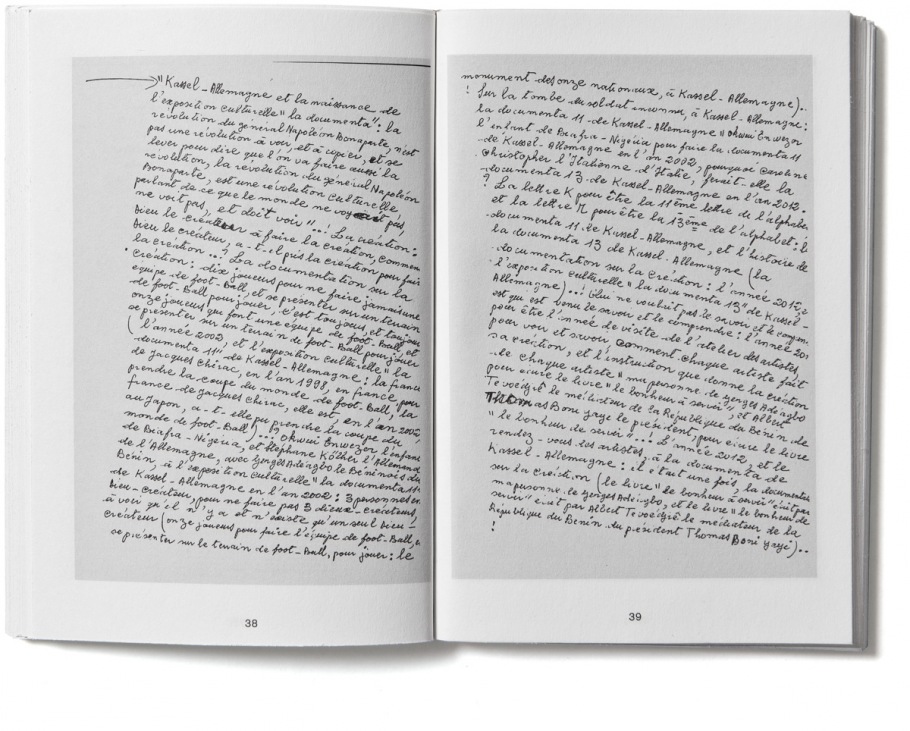 "Kassel-Allemagne et la naissance de
l'exposition culturelle "la documenta": la
révolution du général Napoléon Bonaparte, n'est
pas une révolution à voir, et à copier, et se
lever pour dire que l'on va faire aussi la
révolution, la révolution du général Napoléon
Bonaparte, est une révolution culturelle,
parlant de ce que le monde ne voyait pas,
ne voit pas, et doit voir"...! La création:
dieu le créateur à faire la création, comment
dieu le créateur, a-t-il pris la création pour faire
la création...! La documentation sur la
création: dix joueurs pour ne faire jamais une
equipe de foot-Ball, et se présenter sur un terrain
de foot-Ball pour jouer, c'est toujours, et toujours
onze joueurs qui font une equipe de foot-Ball, et
se présenter sur un terrain de foot-Ball pour jouer
(l'année 2002, et l'exposition culturelle "la
documenta 11" de Kassel-Allemagne: la france
de jacques chirac, en l'an 1998, en france, pour
prendre la coupe du monde de foot-Ball, la
france de jacques chirac, elle est en l'an 2002,
au japon, a-t-elle pu prendre la coupe du
monde de foot-Ball)..!? okwui Enwezor l'enfant
de Biafra-Nigéria, et Stéphane Köhler l'Allemand
de l'Allemagne, avec Georges Adéagbo le Béninois du
Bénin à l'exposition culturelle "la documenta 11"
de Kassel-Allemagne en l'an 2002: 3 personnes en
dieu-créateur, pour ne faire pas 3 dieux-créateurs,
à voir qu'il n'y a et n'existe qu'un seul dieu-
créateur (onze joueurs pour faire l'équipe de foot-Ball, et
se présenter sur le terrain de foot-Ball, pour jouer: le
38
monument des onze nationaux, à Kassel-Allemagne)..
! Sur la tombe du soldat inconnu, à Kassel-Allemagne:
la documenta 11 de Kassel-Allemagne "okwui Enwezor
l'enfant de Biafra-Nigéria pour faire la documenta 11
de Kassel-Allemagne en l'an 2002, pourquoi Caroline
christopher l'Italienne d'Italie, ferait-elle la
documenta 13 de Kassel-Allemagne en l'an 2012.
? La lettre K pour être la 11ème lettre de l'alphabet
et la lettre M pour être la 13ème de l'alphabet: la
documenta 11 de Kassel-Allemagne, et l'histoire de
la documenta 13 de Kassel-Allemagne (la
documentation sur la création: l'année 2012,
l'exposition culturelle "la documenta 13" de Kassel-
Allemagne)..! Qui ne voulait pas le savoir et le compren
est qui est venu le savoir et le comprendre: l'année 201
pour être l'année de visite de l'atelier des artistes,
pour voir et savoir comment chaque artiste fait
sa création, et l'instruction que donne la création
de chaque artiste "ma personne, de georges Adéagbo
pour écrire le livre "le bonheur à servir", et Albert
Tévoédjrè le médiateur de la République du Bénin de
Thomas Boni yayi le président, pour écrire le livre
"le bonheur de servir"...! L'année 2012, et le
rendez-vous des artistes, à la documenta de
Kassel-Allemagne: il était une fois, la documenta
sur la création (le livre "le bonheur à servir" écrit par
ma personne, de georges Adéagbo, et le livre "le bonheur de
servir" écrit par Albert Tévoédjrè le médiateur de la
République du Bénin du président Thomas Boni yayi)..
!
39